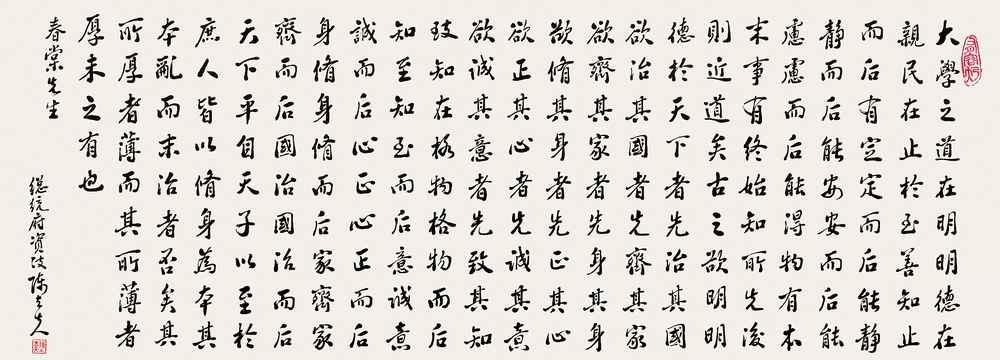 大學之道在明明德在
親民在止於至善知止
而后有定定而后能靜
靜而后能安安而后能
慮慮而后能得物有本
末事有終始知所先後
則近道矣古之欲明明
德於天下者先治其國
欲治其國者先齊其家
欲齊其家者先脩其身
欲脩其身者先正其心
欲正其心者先誠其意
欲誠其意者先致其知
致知在格物格物而后
知至知至而后意誠意
誠而后心正心正而后
身脩身脩而后家齊家
齊而后國治國治而后
天下平自天子以至於
庶人皆以脩身為本其
本亂而末治者否矣其
所厚者薄而其所薄者
厚未之有也
春棠先生
總統府資政陳立夫